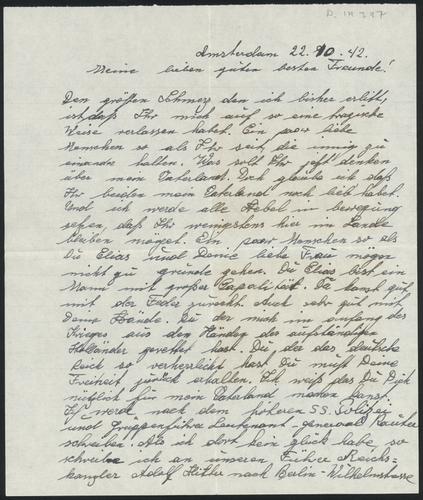 D. IX 397
Amsterdam 22.10.42.
Meine lieben guten besten Freunde!
Den größen Schmerz den ich bisher erlitt,
ist daß Ihr mich auf so eine tragische
Weise verlassen habet. Ein paar liebe
Menschen so als Ihr seit, die innig zu
einander halten. Was solt Ihr jetzt denken
über mein Vaterland. Doch glaube ich daß
Ihr beide mein Vaterland noch lieb habet.
Und ich werde alle Hebel in bewegung
sehen, daß Ihr wenigstens hier im Lande
bleiben moget. Ein paar Menschen so als
Du Elias und Deine liebe Frau mogen
nicht zu grunde gehen. Du Elias bist ein
Mann mit großer Kapaciteit. Du kanst gut
mit der Feder zurecht. Auch sehr gut mit
Deine Hände. Du der mich im anfang des
Krieges aus den Händen der aufständigen
Holländer gerettet hast. Du der das deutsche
Reich so verherlicht hast Du must Deine
Freiheit zurück erhalten. Ich waß das Du Dich
nützlich für mein Vaterland machen kanst.
Ich werde nach dem höheren SS. Polizei
und Gruppenführer Lieutenant-generaal Rauter
schreiben. Als ich dort kein glück habe so
schreibe ich an unseren Führer Reichs-
kanzler Adolf Hitler nach Berlin-Wilhelmstrasse